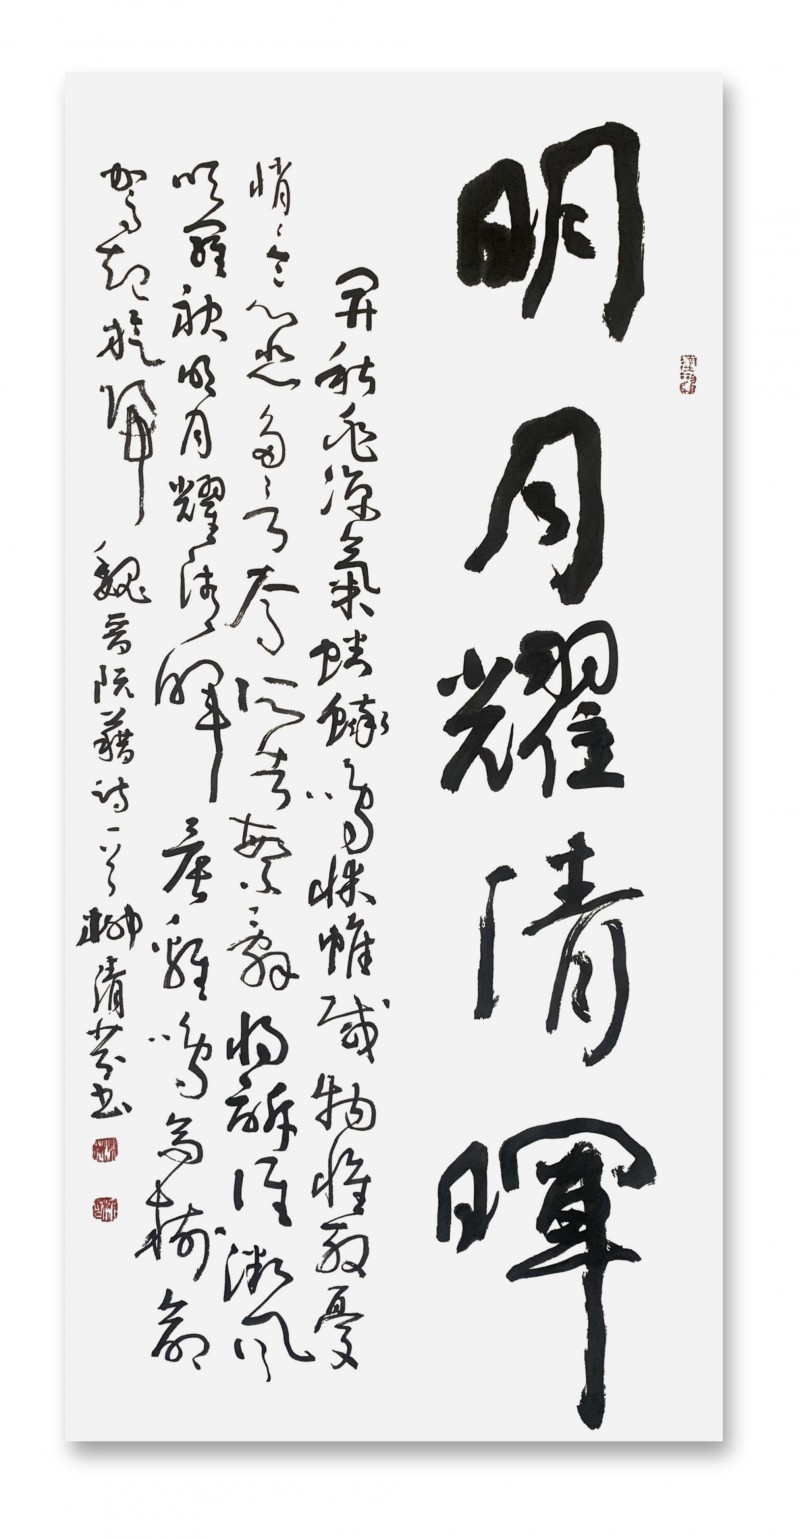 明月耀清暉
開秋兆涼氣蟋蟀鳴床帷感物懷殷憂
悄悄令心悲多言焉所告繁辭將訴誰微風
吹羅袂明月耀清暉晨雞鳴高樹命
駕起旋歸 魏晉阮籍詩一首 柳清芬书